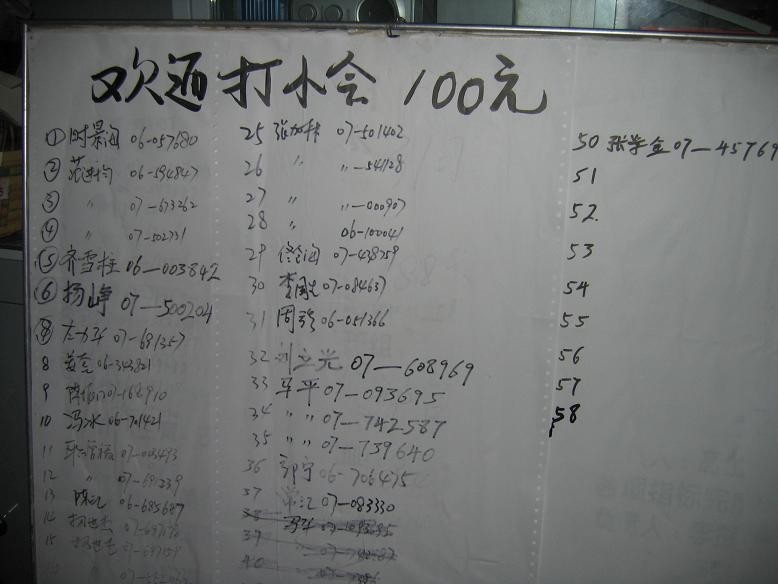 欢迎打小会 100元
① 时景 06-057680
② 范 06-594847
③ 〃 07-673262
④ 〃 07-502731
⑤ 齐雪柱 06-003842
⑥ 杨峥 07-500204
07-691357
8 06-343821
9 07-168910
10 冯冰 06-701421
11 07-003493
12 〃 07-691239
13 陈江 06-685687
14 杨世 07-697170
15 杨世 07-697159
25 张加林 07-501402
26 〃 〃-541128
27 〃 〃-000907
28 〃 06-100041
29 07-438759
30 李 07-084637
31 周 06-051366
32 刘立光 07-608969
33 马平 07-093695
34 〃 〃 07-742587
35 〃 〃 07-739640
36 郭宁 06-706475
37 常江 07-083330
38
39
40
50 张学金 07-45769
51
52
53
54
55
56
57
58